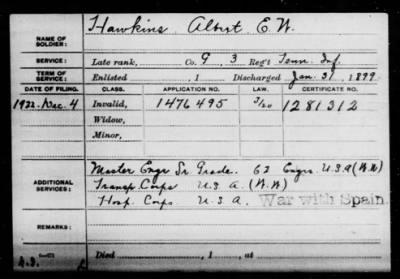 NAME OF SOLDIER: Hawkins, Albert E. W.
SERVICE: Late rank, Co. G, 3 Reg't Tenn. Inf.
TERM OF SERVICE: Enlisted , 1 Discharged Jan. 31, 1899
DATE OF FILING. CLASS. APPLICATION NO. LAW. CERTIFICATE NO.
1922. Dec. 4 Invalid, 1476495 1281312
Widow,
Minor,
ADDITIONAL SERVICES: Master Engr Sr. Grade. 62 Engrs. U.S.A (W.W)
Transp. Corps U.S.A. (W.W)
Hosp. Corps U.S.A War with Spain
REMARKS:
Died , 1 , at